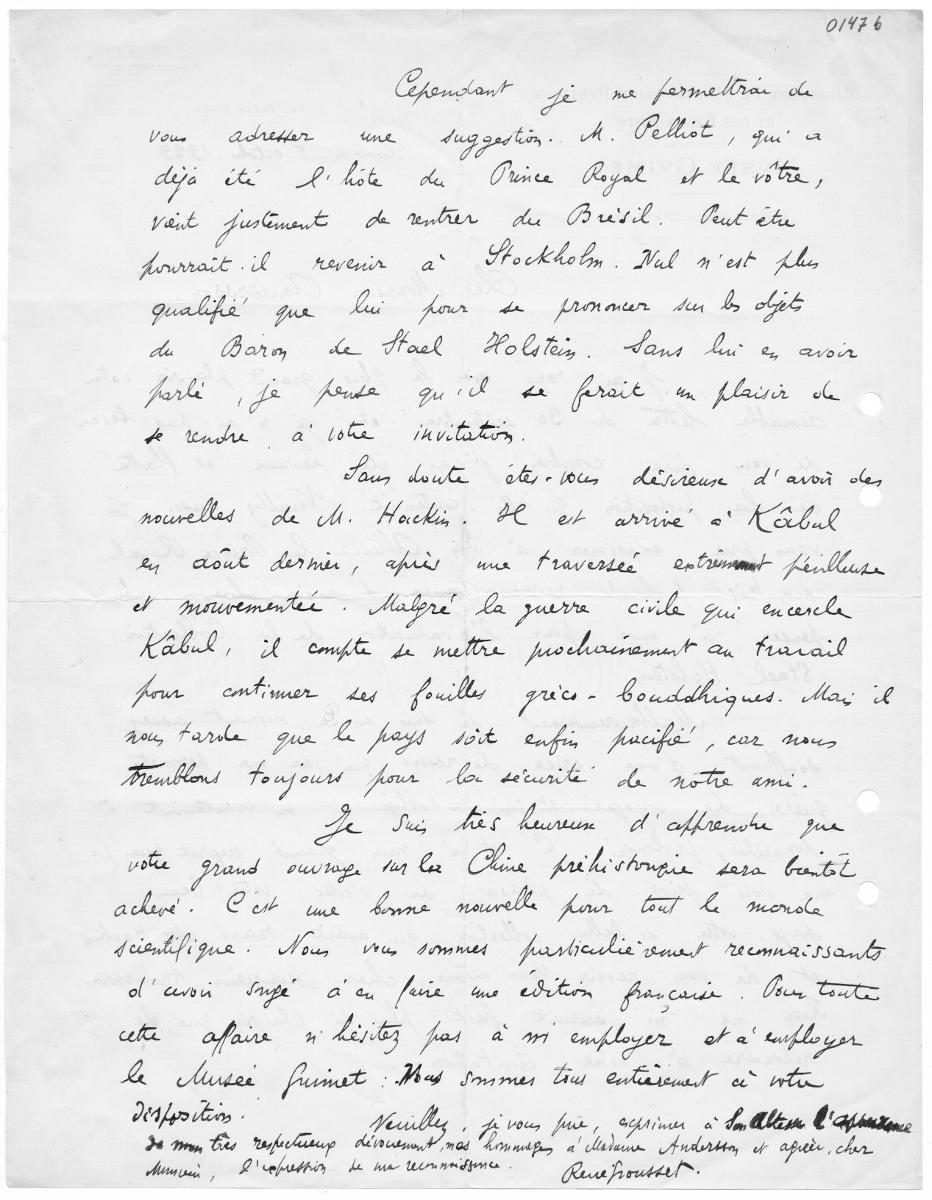 01476
Cependant je me permettrai de
vous adresser une suggestion. M. Pelliot, qui a
déjà été l'hôte du Prince Royal et le vôtre,
vient justement de rentrer du Brésil. Peut être
pourrait-il revenir à Stockholm. Nul n'est plus
qualifié que lui pour se prononcer sur les objets
du Baron de Stael Holstein. Sans lui en avoir
parlé, je pense qu'il se ferait un plaisir de
se rendre à votre invitation.
Sans doute êtes-vous désireuse d'avoir des
nouvelles de M. Hackin. Il est arrivé à Kâbul
en août dernier, après une traversée extrêmement périlleuse
et mouvementée. Malgré la guerre civile qui encercle
Kâbul, il compte se mettre prochainement au travail
pour continuer ses fouilles gréco-bouddhiques. Mais il
nous tarde que le pays soit enfin pacifié, car nous
tremblons toujours pour la sécurité de notre ami.
Je suis très heureux d'apprendre que
votre grand ouvrage sur la Chine préhistorique sera bientôt
achevé. C'est une bonne nouvelle pour tout le monde
scientifique. Nous vous sommes particulièrement reconnaissants
d'avoir songé à en faire une édition française. Pour toute
cette affaire n'hésitez pas à m'employer et à employer
le Musée Guimet : Nous sommes tous entièrement à votre
disposition.
Veuillez, je vous prie, exprimer à Son Altesse l'assurance
de mon très respectueux dévouement, mes hommages à Madame Andersson et agréer, cher
Monsieur, l'expression de ma reconnaissance.
René Grousset.